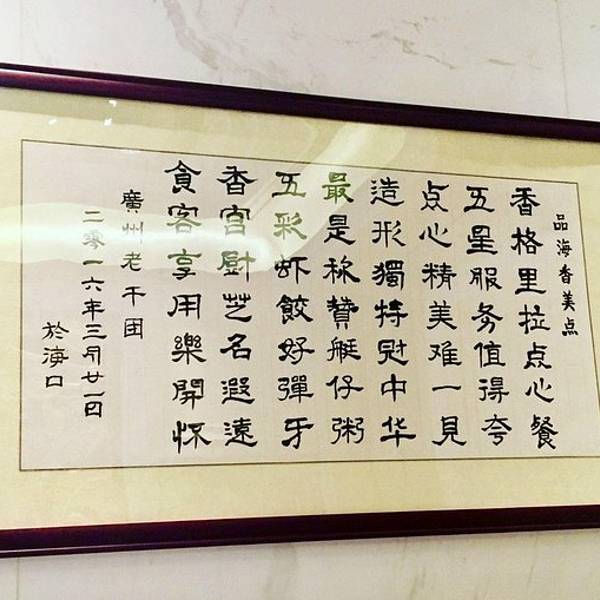 品海香美点
香格里拉点心餐
五星服务值得夸
点心精美难一見
造形獨特冠中华
最是称贊艇仔粥
五彩虾餃好彈牙
香宫厨芝名遐遠
食客享用樂開怀
廣州老干团
二零一六年三月廿一日
於海口